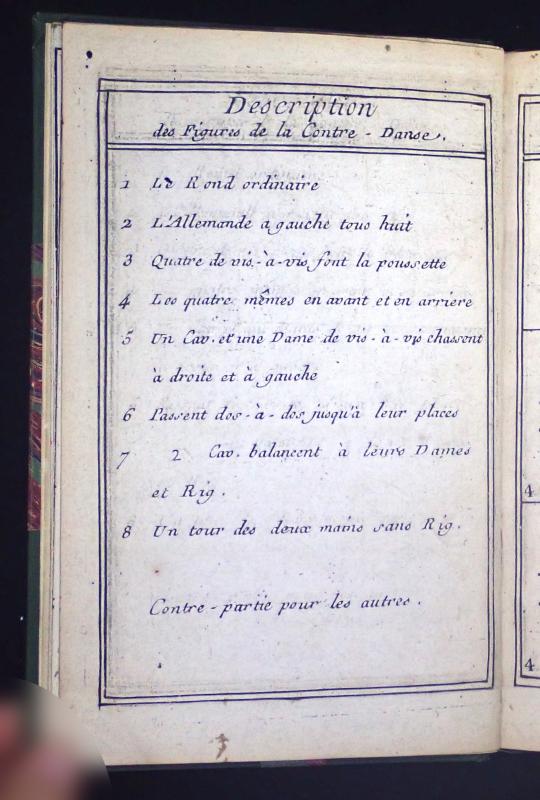 Description
des Figures de la Contre - Danse.
1 Le Rond ordinaire
2 L'Allemande a gauche tous huit
3 Quatre de vis-à-vis font la poussette
4 Les quatre mêmes en avant et en arriere
5 Un Cav. et une Dame de vis-à-vis chassent
à droite et à gauche
6 Passent dos-à-dos jusqu'à leur places
7 2 Cav. balancent à leurs Dames
et Rig.
8 Un tour des deux mains sans Rig.
Contre-partie pour les autres.
4
4